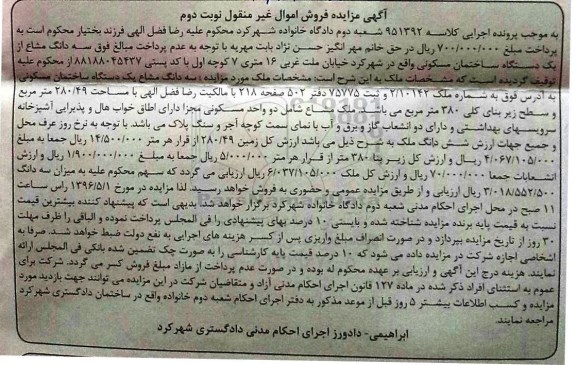 آگهی مزایده فروش اموال غیر منقول نوبت دوم
به موجب پرونده اجرایی کلاسه ۹۵۱۳۹۲ شعبه دوم دادگاه خانواده شهرکرد محکوم علیه رضا فضل الهی فرزند بختیار محکوم است به
پرداخت مبلغ ۷۰۰/۰۰۰/۰۰۰ ریال در حق خانم مهر انگیز حسن نژاد بابت مهریه با توجه به عدم پرداخت مبالغ فوق سه دانگ مشاع از
یک دستگاه ساختمان مسکونی واقع در شهرکرد خیابان ملت غربی ۱۶ متری ۷ کوچه اول با کد پستی ۸۸۱۸۸۰۴۵۴۳۷ از محکوم علیه
توقیف گردیده است که مشخصات ملک به این شرح است: مشخصات ملک مورد مزایده : سه دانگ مشاع یک دستگاه ساختمان مسکونی
به آدرس فوق به شماره ملک ۲/۱۰۱۴۲ و ثبت ۷۵۷۷۵ دفتر ۵۰۲ صفحه ۲۱۸ با مالکیت رضا فضل الهی با مساحت ۲۸۰/۴۹ متر مربع
و سطح زیر بنای کلی ۳۸۰ متر مربع می باشد. ملک مشاع شامل دو واحد مسکونی مجزا دارای اطاق خواب هال و پذیرایی آشپزخانه
سرویسهای بهداشتی و دارای دو انشعاب گاز و برق و آب با نمای سمت کوچه آجر و سنگ پلاک می باشد. با توجه به نرخ روز عرف محل
و جمیع جهات ارزش شش دانگ ملک به شرح ذیل می باشد ارزش کل زمین ۲۸۰/۴۹ از قرار هر متر ۱۴/۵۰۰/۰۰۰ ریال جمعا به مبلغ
۴/۰۶۷/۱۰۵/۰۰۰ ریال و ارزش کل زیر بنا ۳۸۰ متر از قرار هر متر ۵/۰۰۰/۰۰۰ ریال جمعا به مبلغ ۱/۹۰۰/۰۰۰/۰۰۰ ریال و ارزش
انشعابات جمعا ۷۰/۰۰۰/۰۰۰ ریال و ارزش کل ملک ۶/۰۳۷/۱۰۵/۰۰۰ ریال ارزیابی می گردد که سهم محکوم علیه به میزان سه دانگ
۳/۰۱۸/۵۵۲/۵۰۰ ریال ارزیابی و از طریق مزایده عمومی و حضوری به فروش خواهد رسید. لذا مزایده در مورخ ۱۳۹۶/۵/۱ راس ساعت
۱۱ صبح در محل اجرای احکام مدنی شعبه دوم دادگاه خانواده شهرکرد برگزار خواهد شد بدیهی است که پیشنهاد کننده بیشترین قیمت
نسبت به قیمت پایه برنده مزایده شناخته شده و بایستی ۱۰ درصد بهای پیشنهادی را فی المجلس پرداخت نموده و الباقی را ظرف مهلت
۳۰ روز از تاریخ مزایده بپردازد و در صورت انصراف مبلغ واریزی پس از کسر هزینه های اجرایی به نفع دولت ضبط خواهد شد. صرفا به
اشخاصی اجازه شرکت در مزایده داده می شود که ۱۰ درصد قیمت پایه کارشناسی را به صورت چک تضمین شده بانکی فی المجلس ارائه
نمایند. هزینه درج این آگهی و ارزیابی بر عهده محکوم له بوده و در صورت عدم پرداخت از مازاد مبلغ فروش کسر می گردد. شرکت برای
عموم به استثنای افراد ذکر شده در ماده ۱۲۷ قانون اجرای احکام مدنی آزاد و متقاضیان شرکت در این مزایده می توانند جهت بازدید مورد
مزایده و کسب اطلاعات بیشتر ۵ روز قبل از موعد مذکور به دفتر اجرای احکام شعبه دوم خانواده واقع در ساختمان دادگستری شهرکرد
مراجعه نمایند.
ابراهیمی- دادورز اجرای احکام مدنی دادگستری شهرکرد